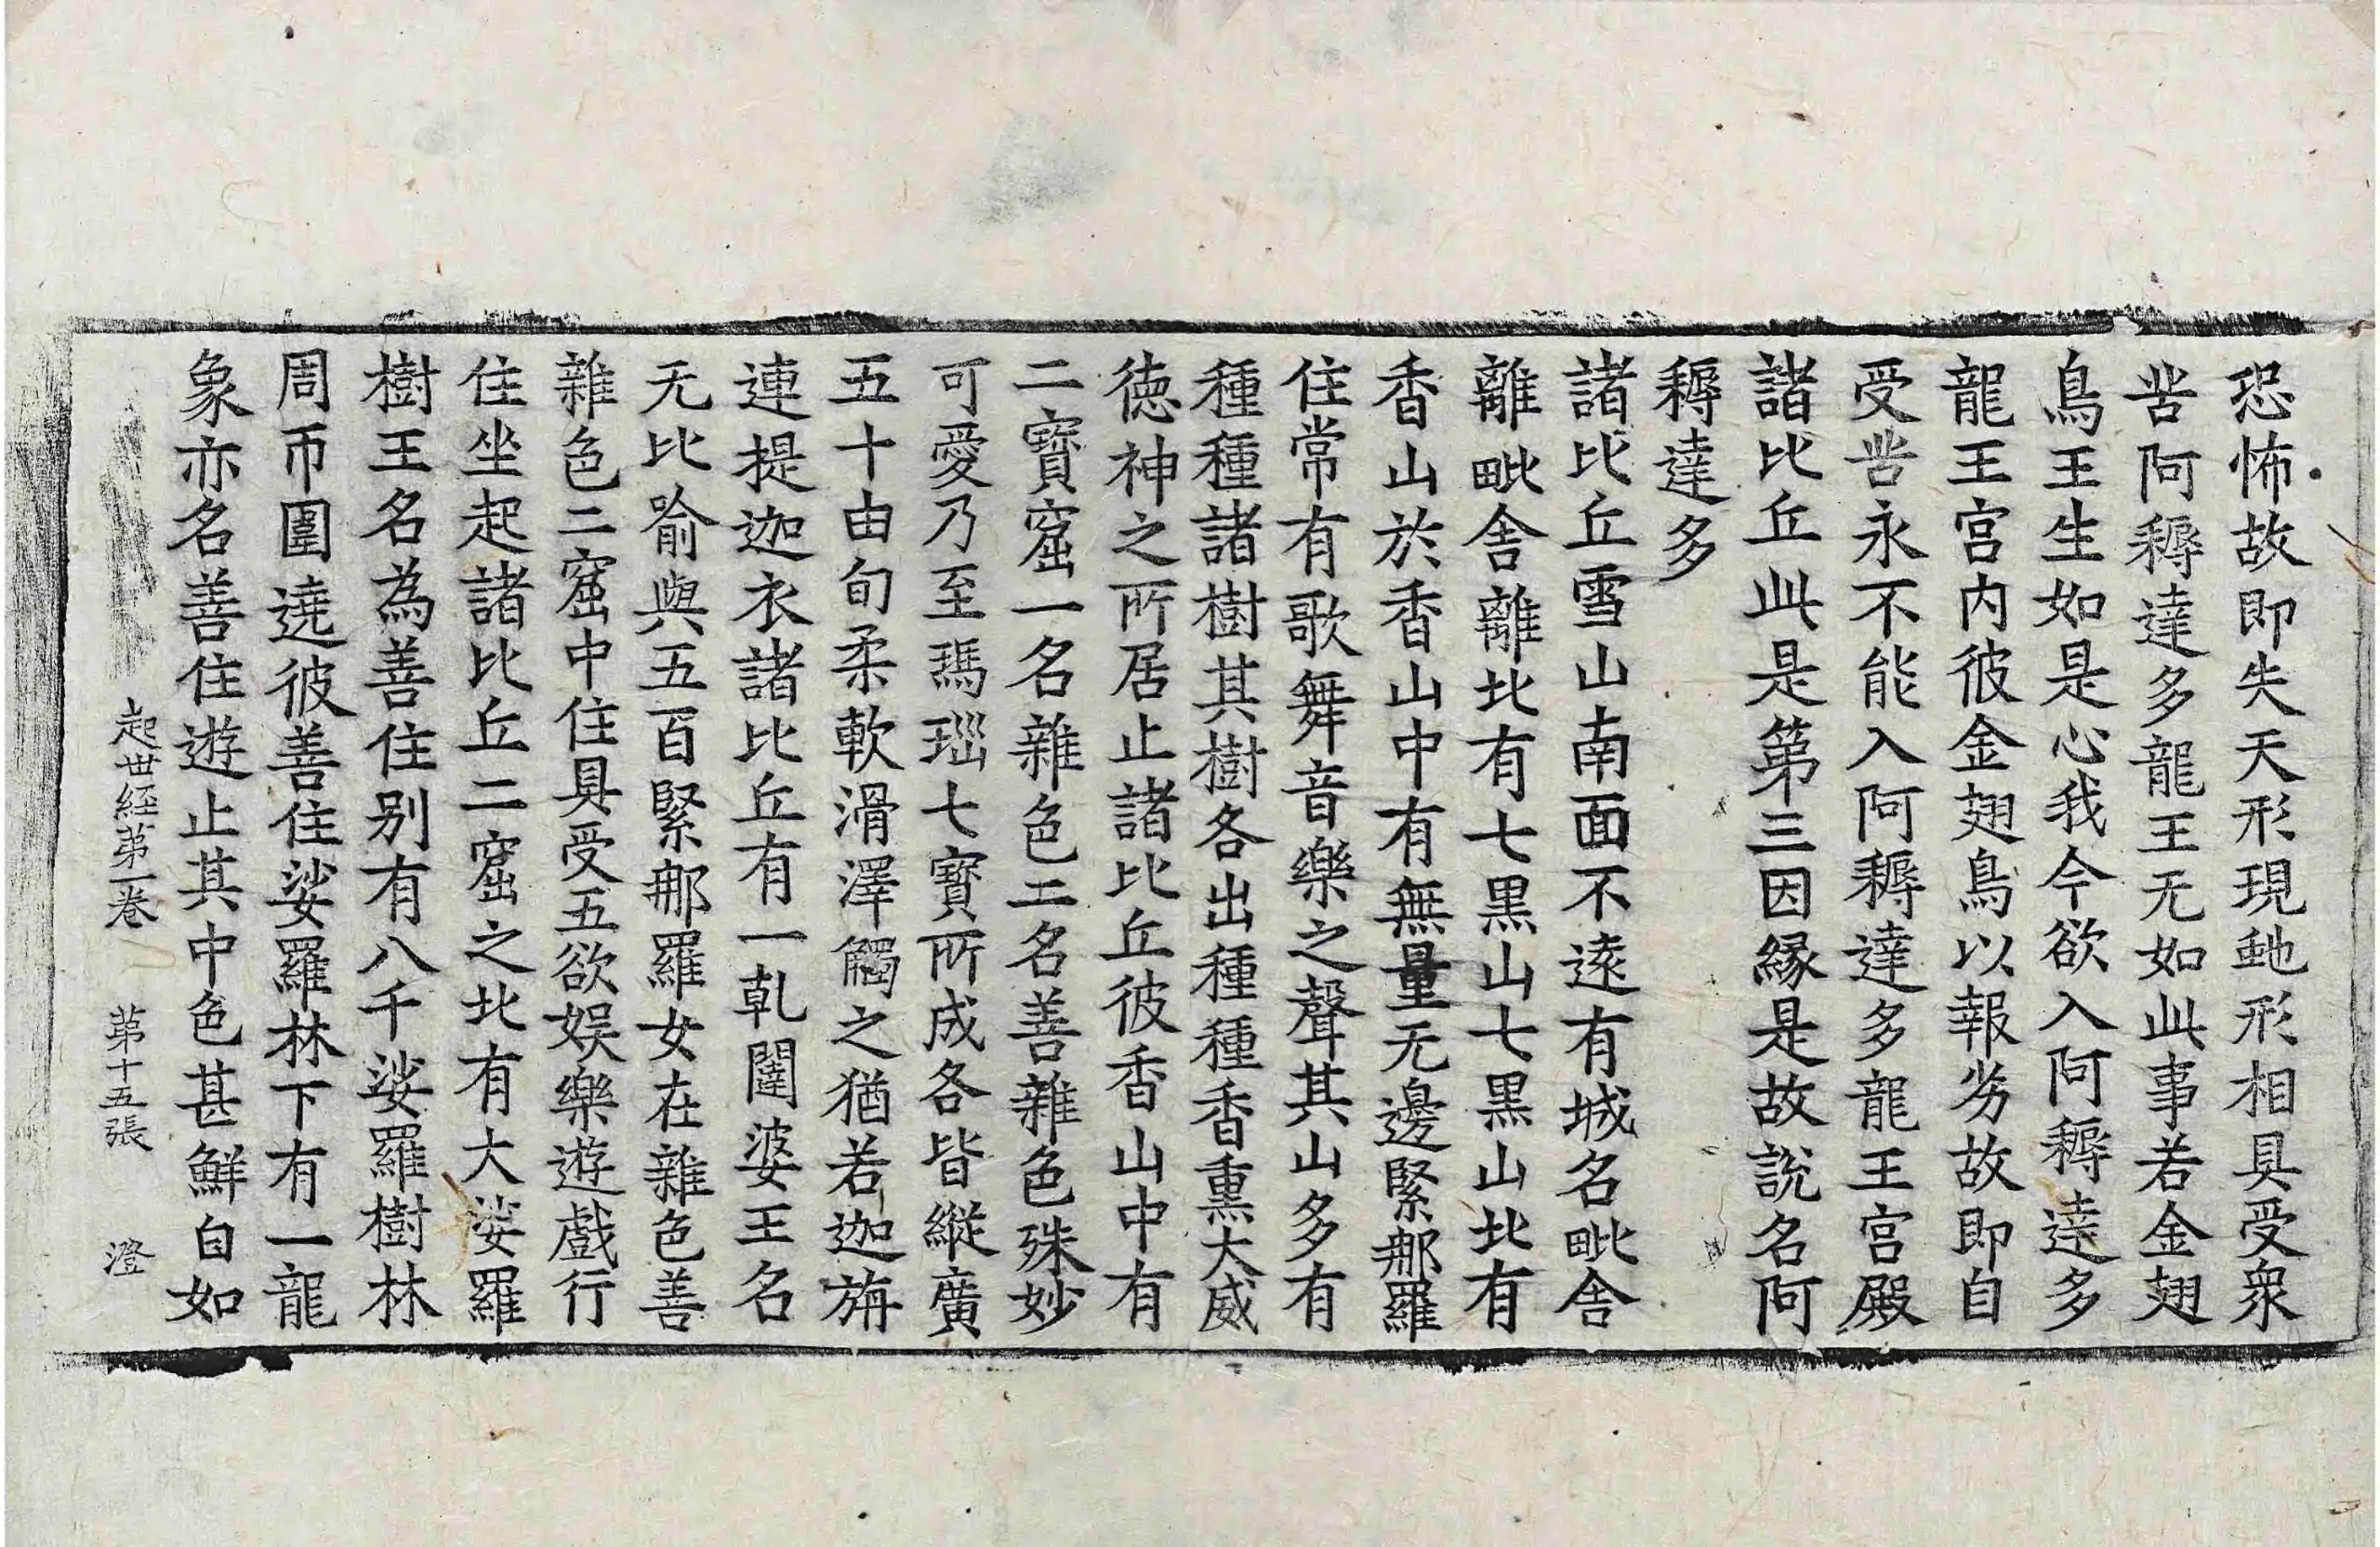 恐怖故即失天形現虵形相具受衆
苦阿耨達多龍王无如此事若金翅
鳥王生如是心我今欲入阿耨達多
龍王宮内彼金翅鳥以報劣故即自
受苦永不能入阿耨達多龍王宮殿
諸比丘此是第三因緣是故說名阿
耨達多
諸比丘雪山南面不遠有城名毗舍
離毗舍離北有七黒山七黒山北有
香山於香山中有無量无邊緊那羅
住常有歌舞音樂之聲其山多有
種種諸樹其樹各出種種香熏大威
徳神之所居止諸比丘彼香山中有
二寳窟一名雜色二名善雜色殊妙
可愛乃至瑪瑙七寳所成各皆縱廣
五十由旬柔軟滑澤觸之猶若迦旃
連提迦衣諸比丘有一乹闥婆王名
无比喻與五百緊那羅女在雜色善
雜色二窟中住具受五欲娱樂遊戲行
住坐起諸比丘二窟之北有大娑羅
樹王名為善住别有八千娑羅樹林
周帀圍遶彼善住娑羅林下有一龍
象亦名善住遊止其中色甚鮮白如
起世經第一卷 第十五張 澄